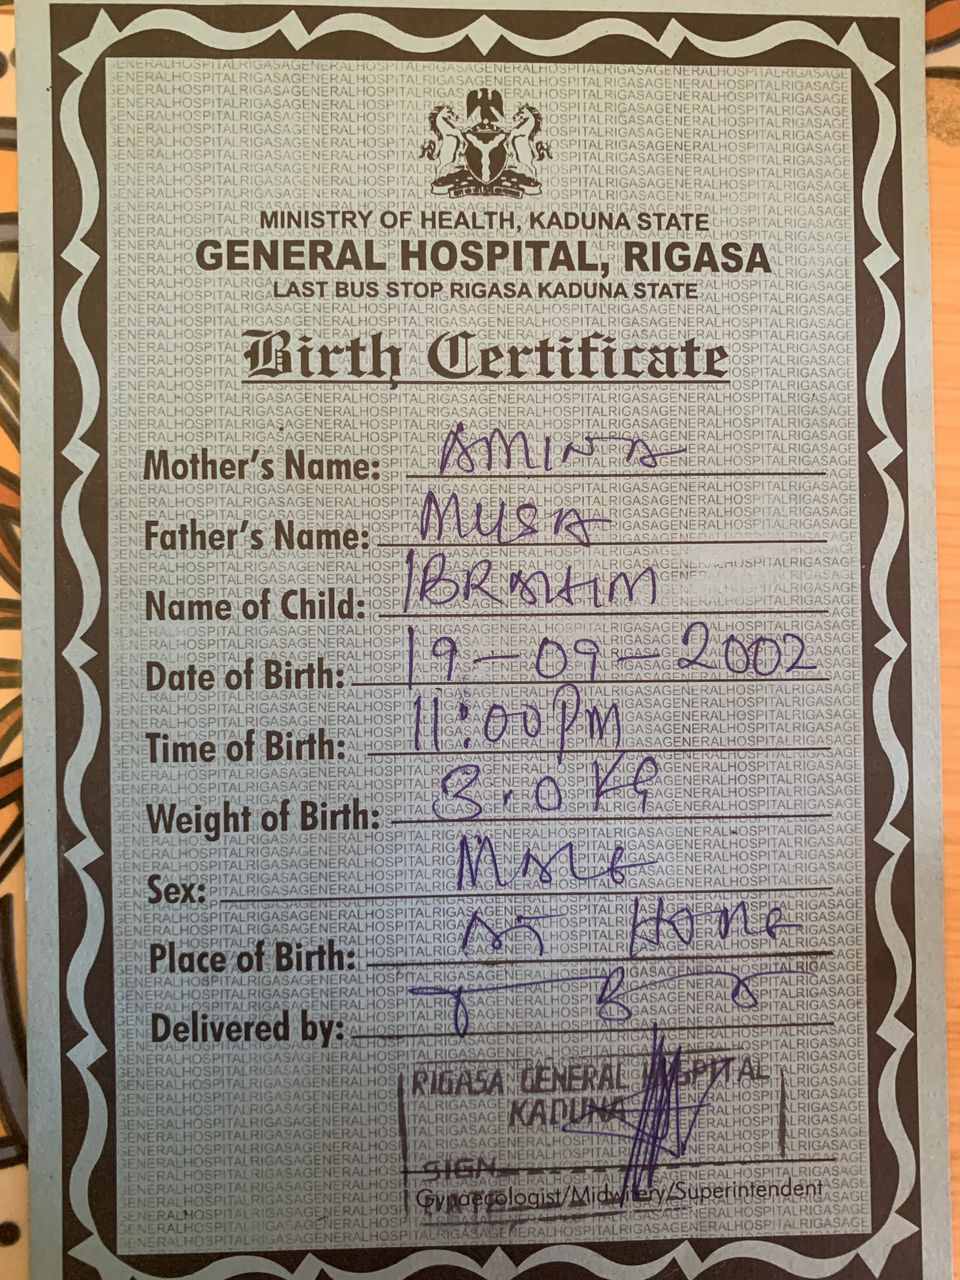 MINISTRY OF HEALTH, KADUNA STATE
GENERAL HOSPITAL, RIGASA
LAST BUS STOP RIGASA KADUNA STATE
Birth Certificate
Mother's Name: AMINA
Father's Name: MUSA
Name of Child: IBRAHIM
Date of Birth: 19-09-2002
Time of Birth: 11:00PM
Weight of Birth: 3.0 KG
Sex: Male
Place of Birth: At Home
Delivered by: T B A
RIGASA GENERAL HOSPITAL
KADUNA
SIGN
Gynaecologist/Midwifery/Superintendent